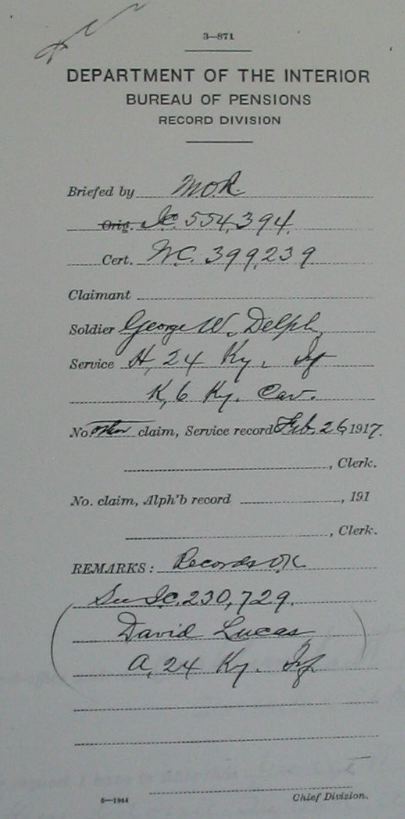 3—871
DEPARTMENT OF THE INTERIOR
BUREAU OF PENSIONS
RECORD DIVISION
Briefed by M.O.R.
Orig. Ic. 554,394
Cert. WC. 399,239
Claimant
Soldier George W. Delph,
Service H, 24 Ky. Inf
K, 6 Ky. Cav.
No other claim, Service record Feb. 26, 1917.
, Clerk.
No. claim, Alph'b record , 191
, Clerk.
REMARKS: Records OK
See Ic. 230,729.
David Lucas
A, 24 Ky. Inf
6—1944
Chief Division.